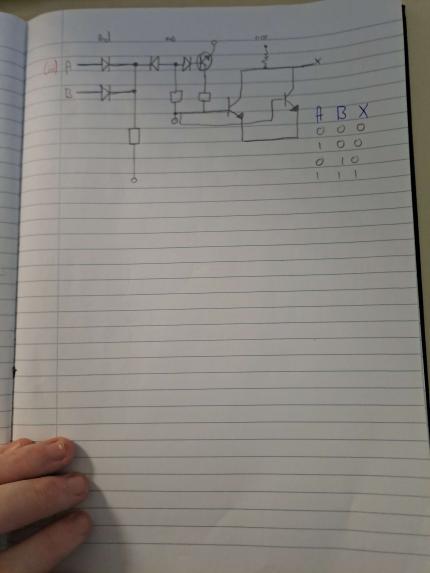 (a) A
B
X
A B X
0 0 0
1 0 0
0 1 0
1 1 1